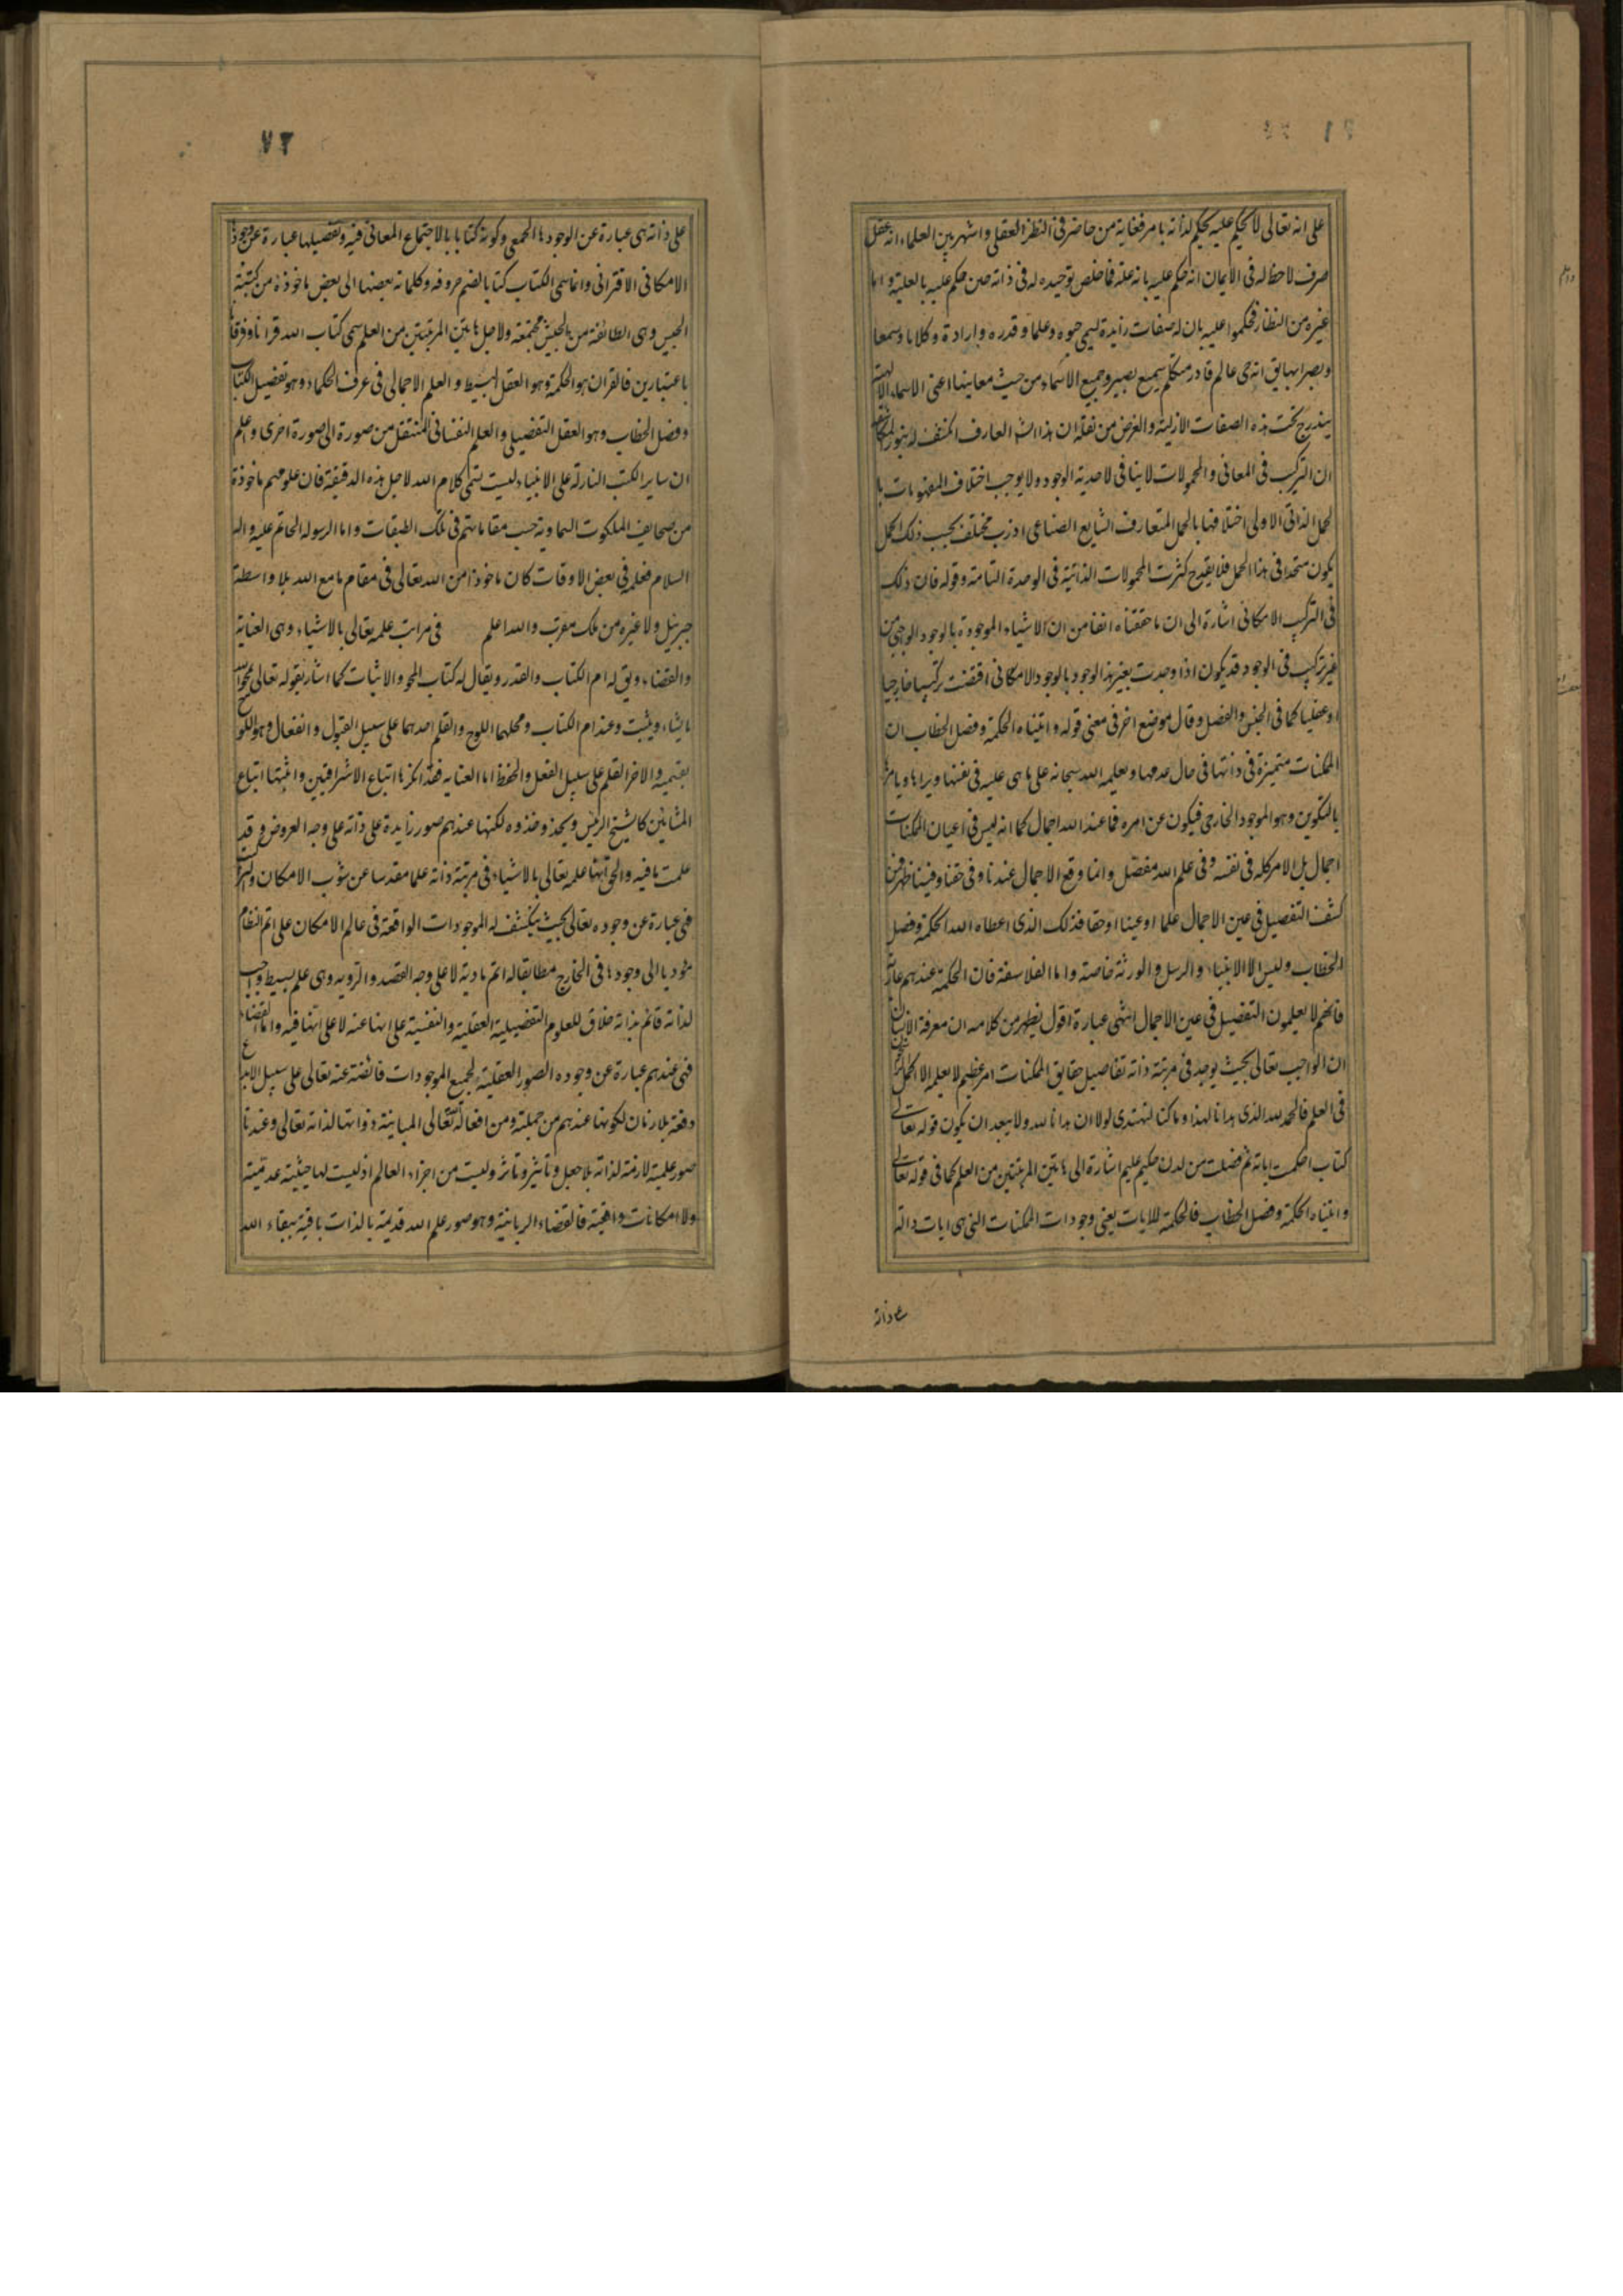 على انه تعالى لا يحكم عليه بحكم لذاته بامر فغاية من حاضر فى النظر العقلى واشهر بين العلماء انه عقل
صرف لا حظ له فى الايمان انه حكم عليه بانه علة فما خلص توحيده له فى ذاته حين حكم عليه بالعلية واما
غيره من النظار فحكموا عليه بان له صفات زايدة ليسمى حيوه وعلما وقدره وارادة وكلاما وسمعا
وبصرا بها يق انه حى عالم قادر متكلم سميع بصير وجميع الاسماء من حيث معانيها اعنى الاسماء الالهية
يندرج تحت هذه الصفات الازلية والغرض من نقله ان هذا العارف المكشف له بنور المكاشفة
ان التركيب فى المعانى والمحمولات لا ينافى لاحدية الوجود ولا يوجب اختلاف المفهومات با
لحمل الذاتى الاولى اختلافها بالحمل المتعارف الشايع الصناعى اذ رب مختلف بحسب ذلك الحمل
يكون متحدا فى هذا الحمل فلا يقدح كثرت المحمولات الذاتية فى الوحدة التامة وقوله فان ذلك
فى التركيب الامكانى اشارة الى ان ما حققناه انفا من ان الاشياء الموجودة بالوجود الوجبى من
غير تركيب فى الوجود قد يكون اذا وجدت بغير هذا الوجود بالوجود الامكانى اقتضت تركيبا خارجيا
او عقليا كما فى الجنس والفصل وقال موضع اخر فى معنى قوله واتيناه الحكمة وفصل الخطاب ان
الممكنات متميزة فى ذاتها فى حال عدمها ويعلمه الله سبحانه على ما هى عليه فى نفسها ويراها ويامرها
بالتكوين وهو الموجود الخارجى فيكون عن امره فما عند الله اجمال كما انه ليس فى اعيان الممكنات
اجمال بل الامر كله فى نفسه وفى علم الله مفصل وانما وقع الاجمال عندنا وفى حقنا وفينا ظهر فمن
كشف التفصيل فى عين الاجمال علما او عينا او حقا فذلك الذى اعطاه الله الحكمة وفصل
الخطاب وليس الا الانبياء والرسل والورثة خاصة واما الفلاسفة فان الحكمة عندهم عارية
فانهم لا يعلمون التفصيل فى عين الاجمال انتهى عبارة اقول يظهر من كلامه ان معرفة الانسان
ان الواجب تعالى بحيث يوجد فى مرتبة ذاته تفاصيل حقايق الممكنات امر عظيم لا يعلمه الا الكمل
فى العلم فالحمد لله الذى هدانا لهذا وما كنا لنهتدى لولا ان هدانا الله ولا يبعد ان يكون قوله تعالى
كتاب احكمت اياته ثم فصلت من لدن حكيم عليم اشارة الى هاتين المرتبتين من العلم كما فى قوله تعالى
واتيناه الحكمة وفصل الخطاب فالحكمة للايات يعنى وجودات الممكنات التى هى ايات دالة
على ذاته
٧٢
على ذاته هى عبارة عن الوجودها الجمعى وكونه كتابا بالاجتماع المعانى فيه وتفصيلها عبارة عن وجود
الامكانى الافترانى وانما سمى الكتاب كتابا لضم حروفه وكلماته بعضها الى بعض ماخوذة من كتيبة
الجيش وهى الطائفة من الجيش مجتمعة ولاجل هاتين المرتبتين من العلم سمى كتاب الله قرانا وفرقانا
باعتبارين فالقران هو الحكمة وهو العقل البسيط والعلم الاجمالى فى عرف الحكماء وهو تفصيل الكتاب
وفصل الخطاب وهو العقل التفصيلى والعلم النفسانى المنتقل من صورة الى صورة اخرى واعلم
ان ساير الكتب النازلة على الانبياء ليست تسمى كلام الله لاجل هذه الدقيقة فان علومهم ماخوذة
من صحايف الملكوت السماوية حسب مقاماتهم فى تلك الطبقات واما الرسوله الخاتم عليه واله
السلام فعلمه فى بعض الاوقات كان ماخوذا من الله تعالى فى مقام مامع الله بلا واسطة
جبرئيل ولا غيره من ملك مقرب والله اعلم فى مراتب علمه تعالى بالاشياء وهى العناية
والقضاء ويق له ام الكتاب والقدر ويقال له كتاب المحو والاثبات كما اشار بقوله تعالى يمحو الله
ما يشاء ويثبت وعنده ام الكتاب ومحلهما اللوح والقلم احدهما على سبيل القبول وانفعال وهو اللوح
بقسميه والاخر القلم على سبيل الفعل والحفظ اما العنايه فقد انكرها اتباع الاشراقيين واثبتها اتباع
المشائين كالشيخ الرئيس ويحذو حذوه لكنها عندهم صور زايدة على ذاته على وجه العروض وقد
علمت ما فيه والحق انها علمه تعالى بالاشياء فى مرتبة ذاته علما مقدسا عن شوب الامكان والتركيب
فهى عبارة عن وجوده تعالى بحيث ينكشف له الموجودات الواقعة فى عالم الامكان على اتم النظام
مؤديا الى وجودها فى الخارج مطابقا له اتم تادية لا على وجه القصد والرويه وهى علم بسيط واجب
لذاته قائم بذاته خلاق للعلوم التفصيلية العقلية والنفسية على انها عنه لا على انها فيه واما القضاء
فهى عندهم عبارة عن وجوده الصور العقلية لجميع الموجودات فائضة عنه تعالى على سبيل الابداع
دفعة بلا زمان لكونها عندهم من جملة ومن افعاله تعالى المباينة ذواتها لذاته تعالى وعندنا
صور علمية لازمة لذاته بلا جعل وتاثير وتاثر وليست من اجزاء العالم اذ ليست لها حيثية عدمية
ولا امكانات واقعية فالقضاء الربانية وهو صور علم الله قديمة بالذات باقية ببقاء الله